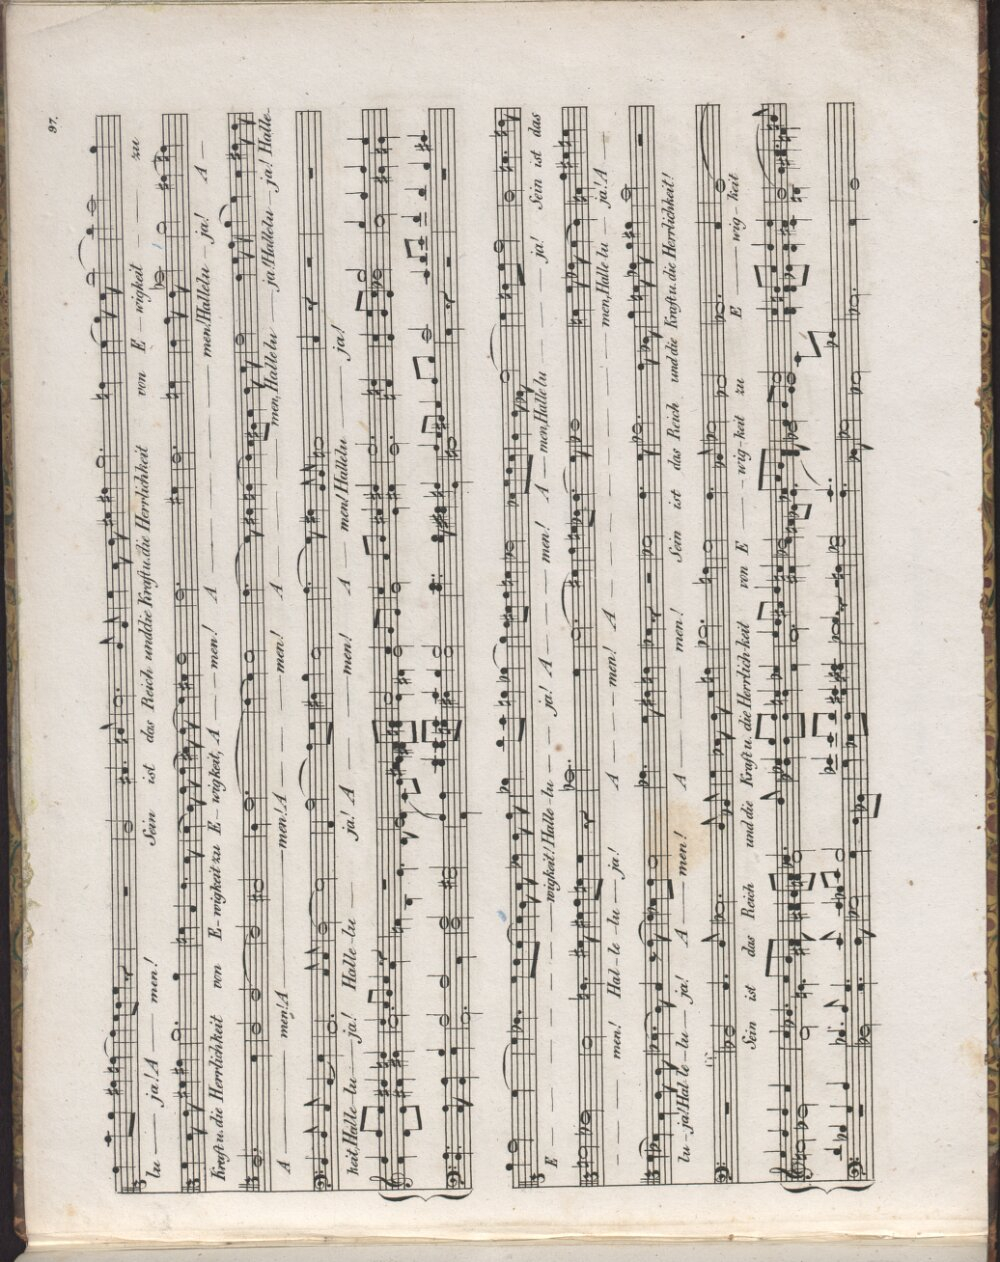 97.
lu — ja! A — men! Sein ist das Reich und die Kraft u. die Herrlichkeit von E — wigkeit — zu
Kraft u. die Herrlichkeit von E-wigkeit zu E-wigkeit, A — men! A — men! Hallelu — ja! A —
A — men! A — men! A — men! A — men, Hallelu — ja! Hallelu — ja! Halle-
keit, Halle-lu — ja! Halle-lu — ja! A — men! A — men! Hallelu — ja!
E — wigkeit! Halle-lu — ja! A — men! A — men, Hallelu — ja! Sein ist das
men! Hal-le-lu — ja! A — men! A — men, Halle lu — ja! A —
lu - ja! Hal-le-lu — ja! A — men! A — men! Sein ist das Reich und die Kraft u. die Herrlichkeit!
ff
Sein ist das Reich und die Kraft u. die Herrlich-keit von E — wig-keit zu E — wig-keit